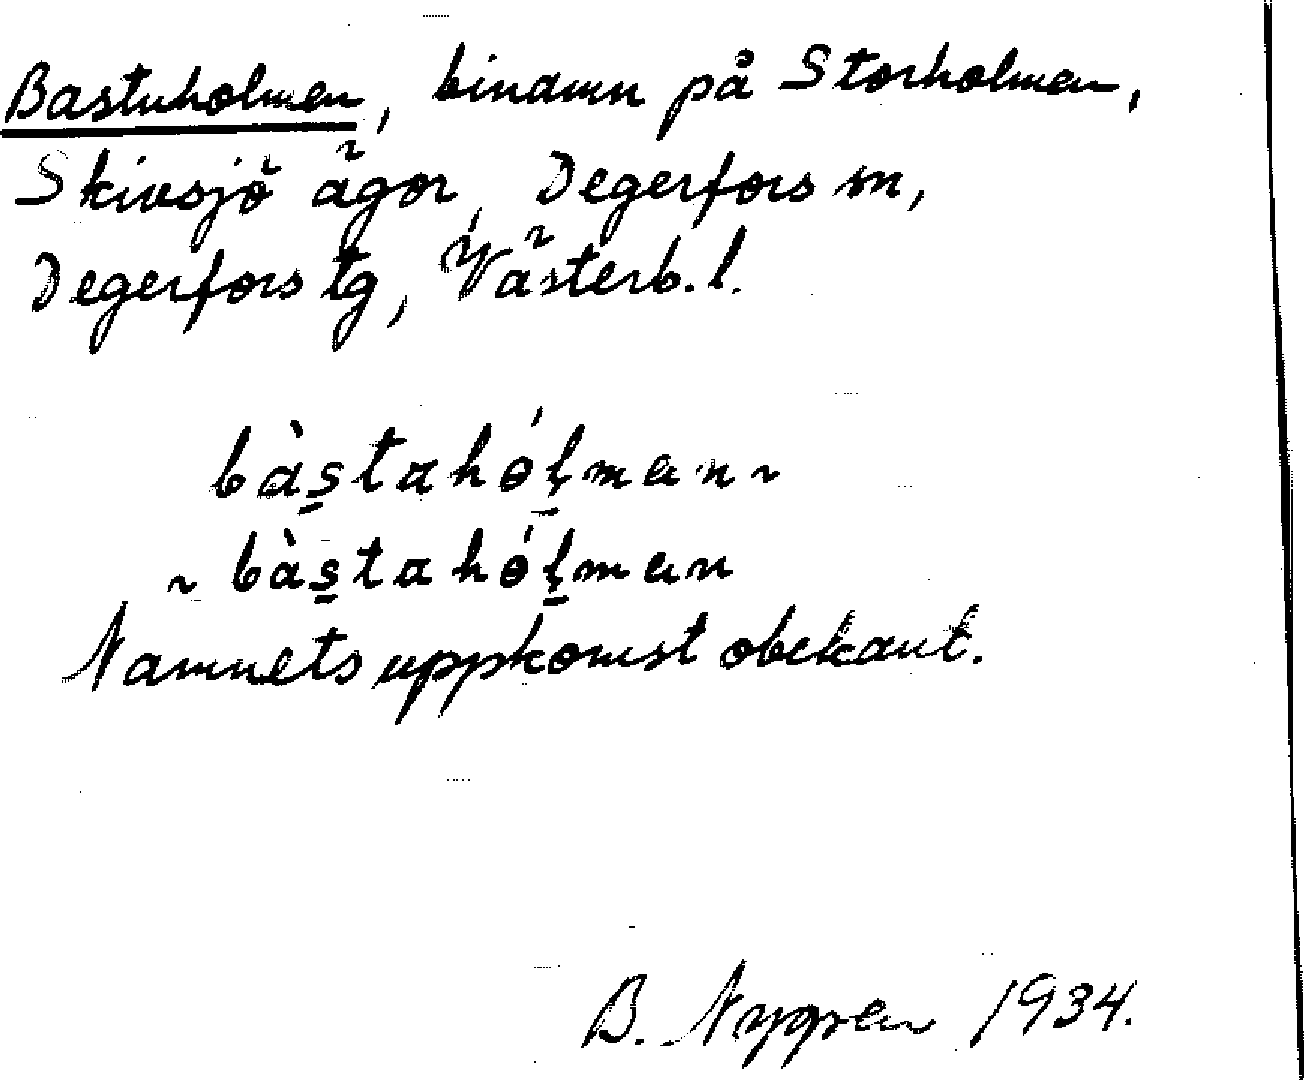 Bastuholmen, binamn på Storholmen,
Skivsjö ägor, Degerfors sn,
Degerfors tg, Västerb. l.
bàs̱tahól̥man ~
~ bàs̱tahól̥man
Namnets uppkomst obekant.
B. Nygren 1934.